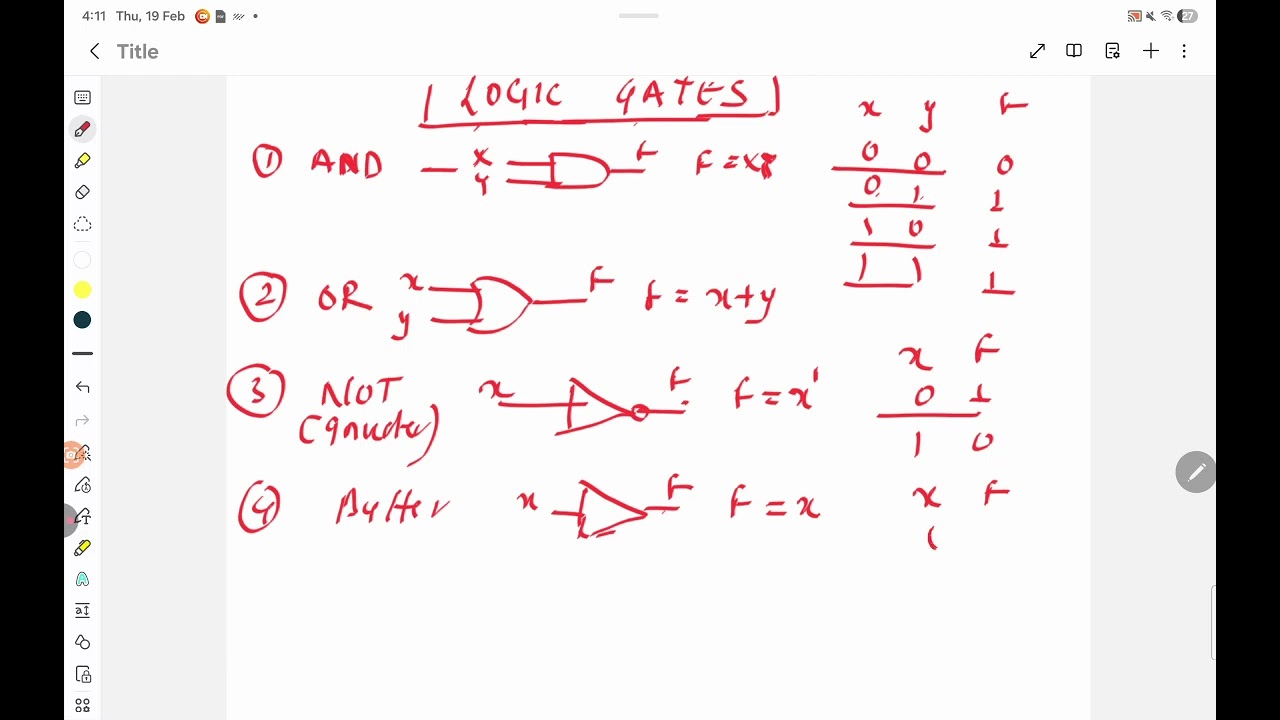 4:11 Thu, 19 Feb 27
Title
LOGIC GATES
x y F
① AND x y F F = xy
0 0 0
0 1 1
1 0 1
1 1 1
② OR x y F F = x+y
x F
③ NOT x F F = x' 0 1
1 0
④ Buffer x F F = x x F